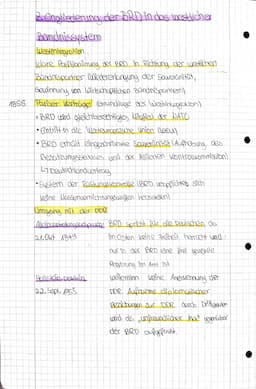 Eingliederung der BRD in das westliche
Bündnissystem
Westintegration
klare Positionierung der BRD in Richtung der westlichen
Bündnispartner (Wiedererlangung der Souveränität,
Gewinnung von wirtschaftlichen Bündnispartnern)
1955 Pariser Verträge (Grundlage der Westintegration)
• BRD wird gleichberechtigtes Mitglied der NATO
• Eintritt in die Westeuropäische Union
• BRD erhält eingeschränkte Souveränität (Aufhebung des
Besatzungsstatuts und der Alliierten
↳ Deutschlandvertrag
• System der Rüstungskontrolle (BRD verpflichtet sich
keine Massenvernichtungswaffen herzustellen)
Umgang mit der DDR
Alleinvertretungsanspruch BRD spricht für alle Deutschen da
21. Okt. 1949 im Osten keine Freiheit herrscht und
nur in der BRD eine frei gewählte
Regierung im Amt ist
Hallstein-Doktrin weiterhin keine Anerkennung der
22. Sept. 1955 DDR. Aufnahme diplomatischer
Beziehungen zur DDR durch Drittstaaten
wird als „unfreundlicher Akt" gegenüber
der BRD aufgefasst.